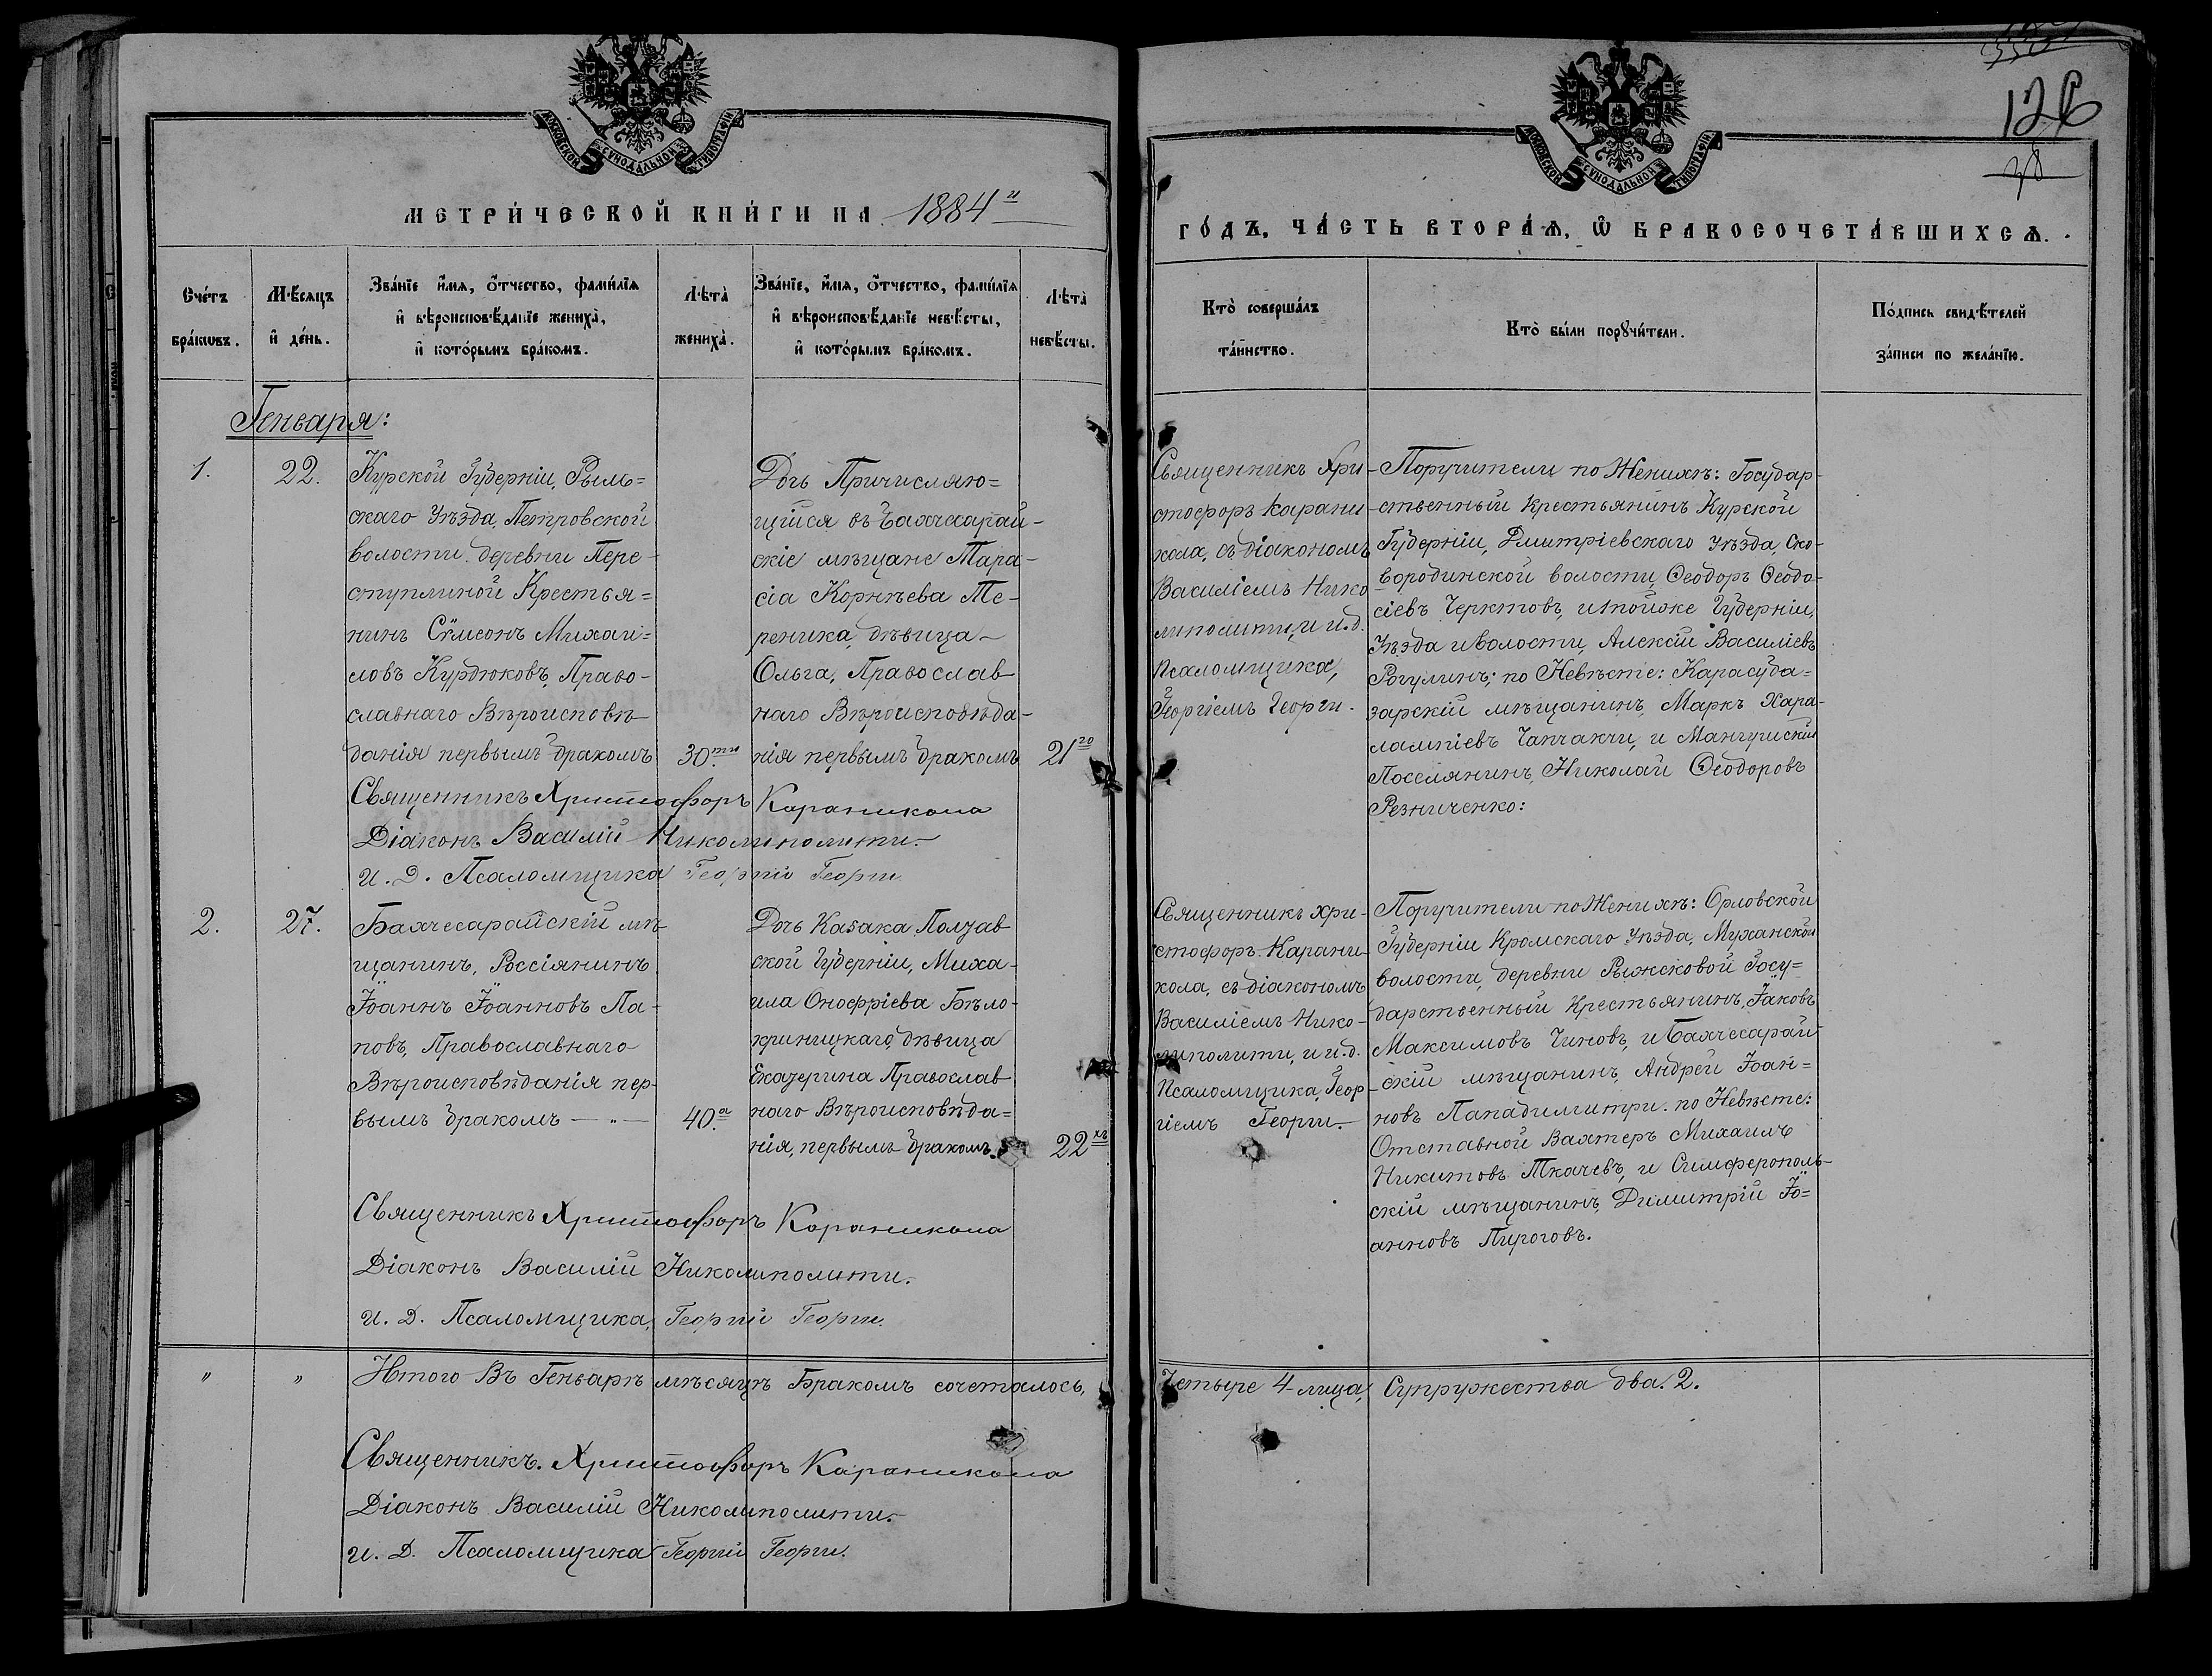 126
38
МОСКОВСКОЙ СѴНОДАЛЬНОЙ ТИПОГРАФІИ
МОСКОВСКОЙ СѴНОДАЛЬНОЙ ТИПОГРАФІИ
МЕТРИ́ЧЕСКОЙ КНИ́ГИ НА 1884й
ГО́ДЪ, ЧА́СТЬ ВТОРА́Ѧ, Ѡ҆ БРАКОСОЧЕТА́ВШИХСѦ.
Сче́тъ
бра́кѡвъ.
Мѣ́сѧцъ
и҆ де́нь.
Зва́нїе и҆́мѧ, ѻ҆́тчество, фами́лїѧ
и҆ вѣроисповѣ́данїе жениха̀,
и҆ кото́рымъ бра́комъ.
Лѣта̀
жениха̀.
Зва́нїе, и҆́мѧ, ѻ҆́тчество, фами́лїѧ
и҆ вѣроисповѣ́данїе невѣ́сты,
и҆ кото́рымъ бра́комъ.
Лѣта̀
невѣ́сты.
Кто̀ соверша́лъ
та́инство.
Кто̀ бы́ли порꙋчи́тели.
По́дпись свидѣ́телей
за́писи по жела́нїю.
Генваря:
1.
22.
Курской Губерніи, Рыль=
скаго Уѣзда, Петровской
волости деревни Пере-
ступлиной Крестья=
нинъ Сѵмеонъ Михаи=
ловъ Курдюковъ, Право-
славнаго Вѣроисповѣ-
данія первымъ бракомъ
30ти
Дочь Причисляю=
щійся въ Бахчсарай-
скіе мѣщане Тара-
сіа Корнѣева Те-
реника, дѣвица
Ольга, Православ-
наго Вѣроисповѣда-
нія первымъ бракомъ
21го
Священникъ Хри-
стофоръ Карани-
кола, съ діакономъ
Василіемъ Нико
липолити, и и.д.
Псаломщика,
Георгіемъ Георги.
Поручители по Женихѣ: Государ-
ственный Крестьянинъ Курской
Губерніи, Дмитріевскаго Уѣзда, Ско-
вородинской волости, Ѳеодоръ Ѳеодо-
сіевъ Чертковъ, и тойже Губерніи,
Уѣзда и волости, Алексій Василіевъ
Рогулинъ; по Невѣсте: Карасуба=
зарскій мѣщанинъ, Маркъ Хара-
лампіевъ Чапчакчи, и Мангушскій
Поселянинъ, Николай Ѳеодоровъ
Резниченко:
Священникъ Христофоръ Караникола
Діаконъ Василій Николиполити.
И. Д. Псаломщика Георгій Георги.
2.
27.
Бахчесарайскій мѣ-
щанинъ, Россіянинъ
Іоаннъ Іоанновъ Па-
повъ, Православнаго
Вѣроисповѣданія пер-
вымъ бракомъ — „ —
40а
Дочь Казака Полтав
ской Губерніи, Миха-
ила Онофріева Бѣло-
криницкаго, дѣвица
Екатерина Православ
наго Вѣроисповѣда=
нія, первымъ бракомъ.
22хъ
Священникъ Хри-
стофоръ Карани-
кола, съ діакономъ
Василіемъ Нико-
липолити, и и.д.
Псаломщика, Геор
гіемъ Георги.
Поручители по Женихѣ: Орловской
Губерніи Кромскаго Уѣзда, Муханской
волости, деревни Рыжковой Госу=
дарственный Крестьянинъ, Іаковъ
Максимовъ Чиновъ, и Бахчесарай-
скій мѣщанинъ, Андрей Іоан=
новъ Пападимитри. по Невѣсте:
Отставной Вахтеръ Михаилъ
Никитовъ Ткачевъ, и Симферополь-
скій мѣщанинъ, Димитрій Іо=
анновъ Пироговъ.
Священникъ Христофоръ Караникола
Діаконъ Василій Николиполити.
И. Д. Псаломщика, Георгій Георги.
„
„
Итого Въ Генварѣ мѣсяцѣ Бракомъ сочеталось,
Четыре 4 лица, Супружества два. 2.
Священникъ. Христофоръ Караникола
Діаконъ Василій Николиполити.
И. Д. Псаломщика Георгій Георги.